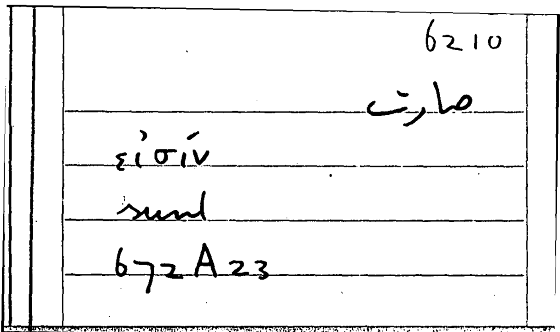 6210
صارت
εἰσίν
sunt
672A23